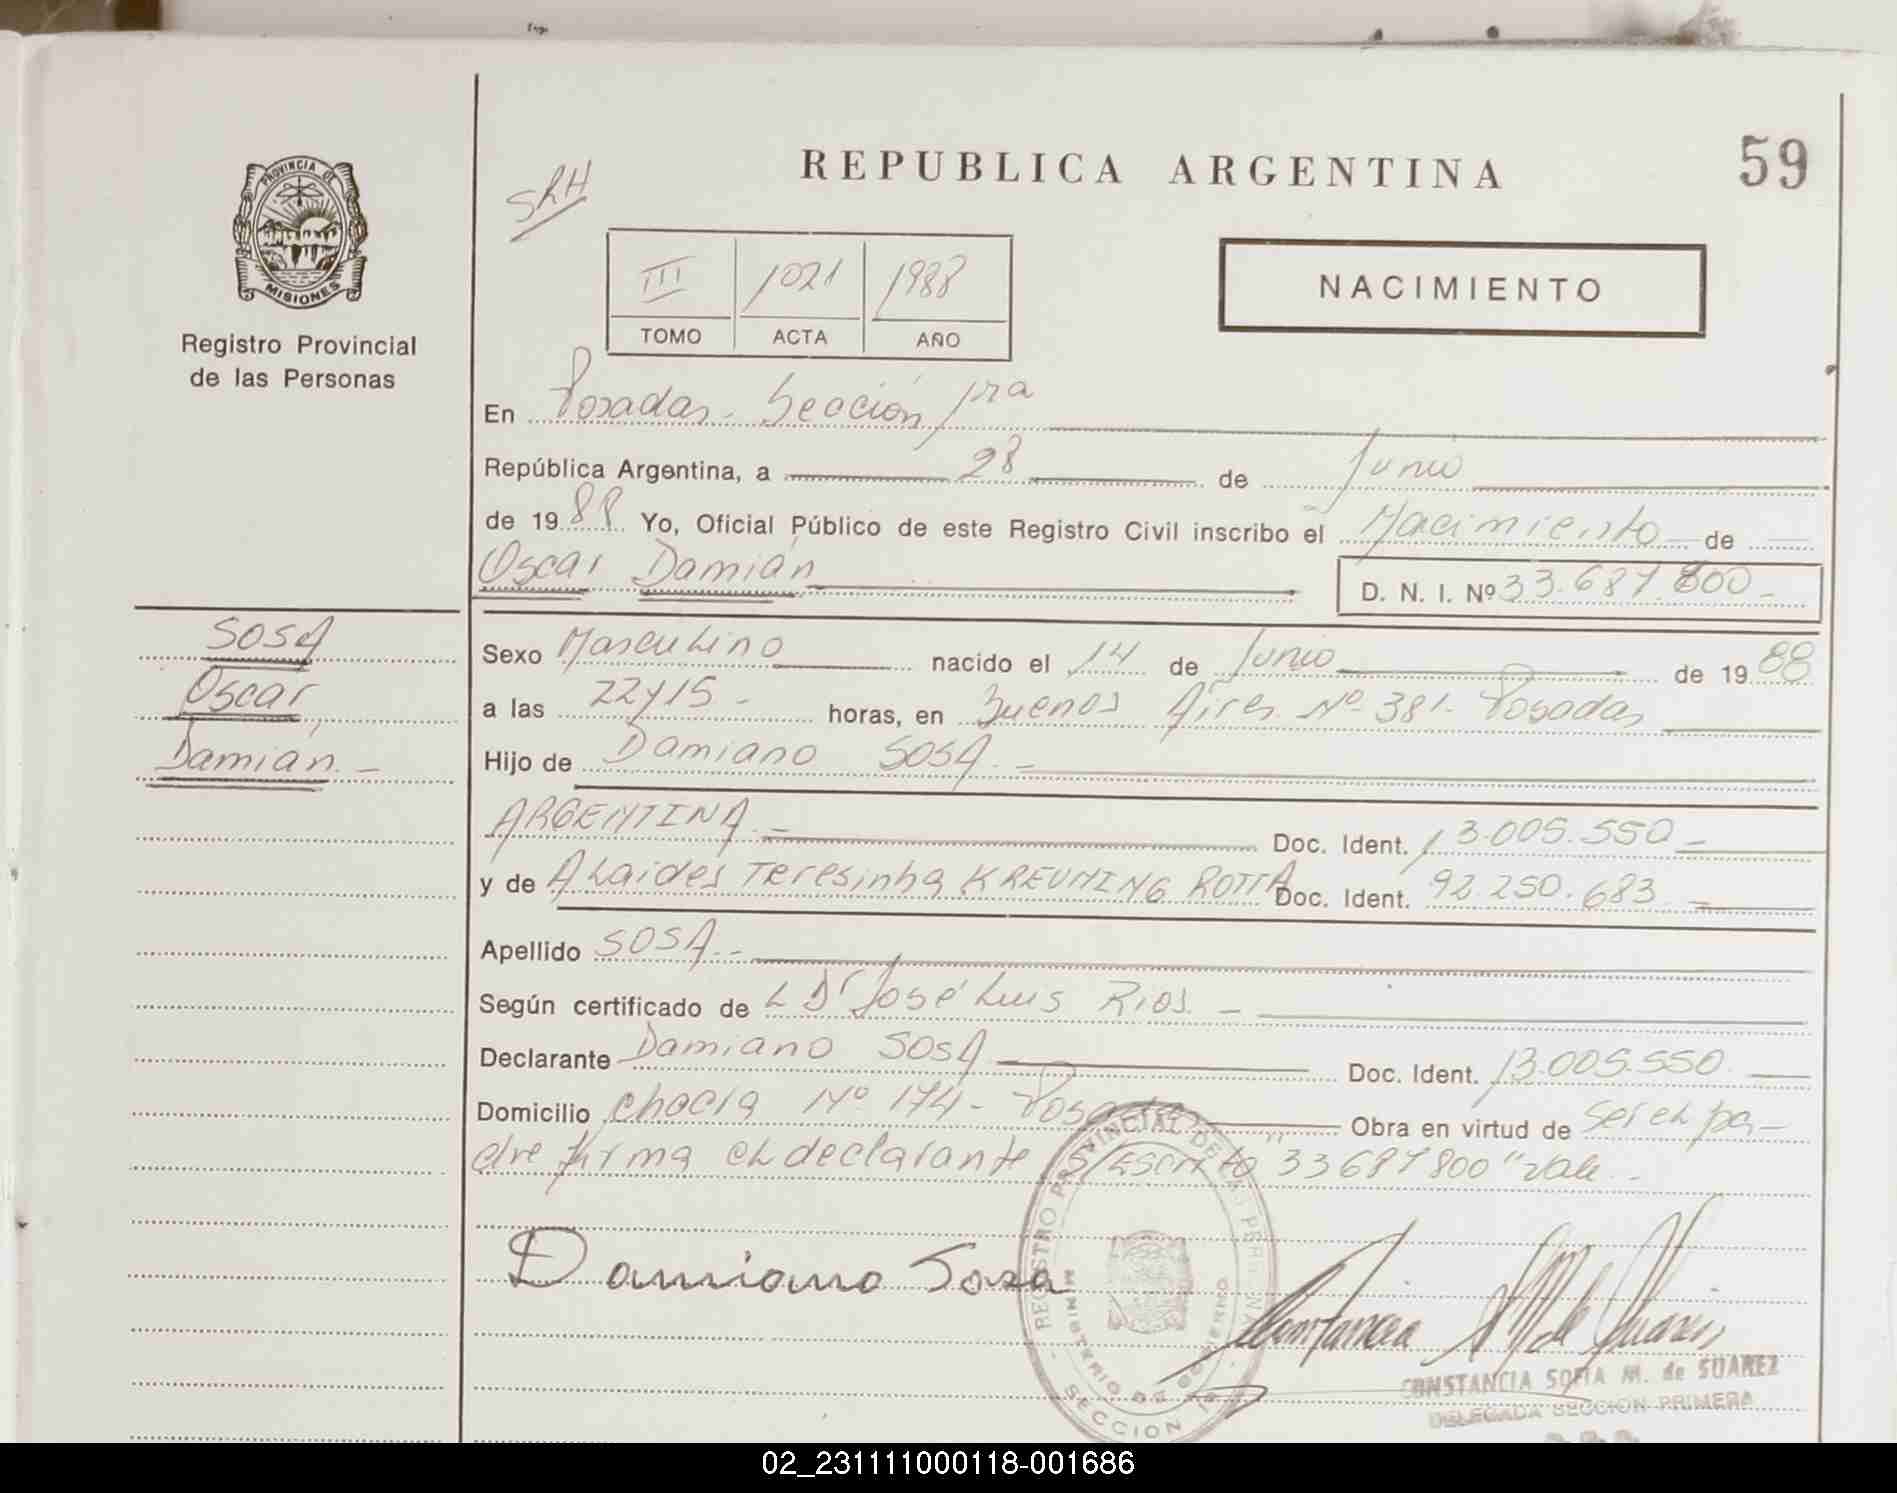 59
REPUBLICA ARGENTINA
SRH
PROVINCIA DE
MISIONES
Registro Provincial
de las Personas
III 1021 1988
TOMO ACTA AÑO
NACIMIENTO
En Posadas - Sección 1ra
República Argentina, a 28 de Junio
de 1988 Yo, Oficial Público de este Registro Civil inscribo el Nacimiento de
Oscar Damián D. N. I. Nº 33.687.800 -
SOSA
Oscar
Damián. -
Sexo Masculino nacido el 14 de Junio de 1988
a las 22y15 - horas, en Buenos Aires Nº 381 - Posadas
Hijo de Damiano SOSA. -
ARGENTINA. - Doc. Ident. 13.005.550 -
y de ALaides Teresinha KREUNING ROTTA Doc. Ident. 92.250.683 -
Apellido SOSA. -
Según certificado de L Dr José Luis Rios -
Declarante Damiano SOSA Doc. Ident. 13.005.550.
Domicilio Nº 174 - Posadas Obra en virtud de ser el pa-
dre firma el declarante S/Escrito "33687800" vale. -
Damiano Sosa
REGISTRO PROVINCIAL DE LAS PERSONAS
MINISTERIO DE GOBIERNO
SECCION 1ª
CONSTANCIA SOFIA M. de SUAREZ
DELEGADA SECCION PRIMERA
02_231111000118-001686